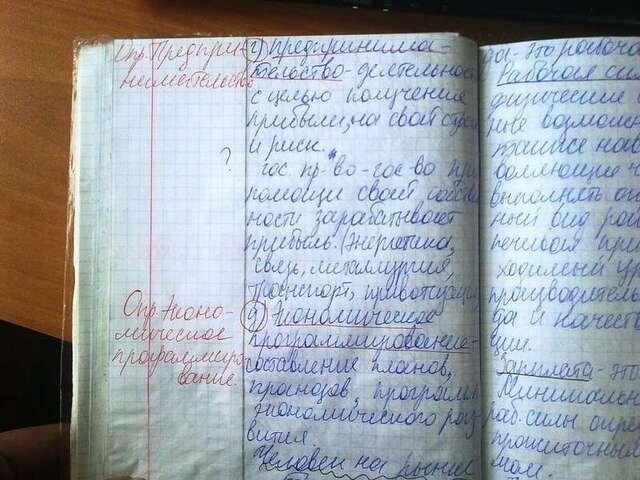 Опр. Предприн
нимательство
?
Опр. Эконо-
мическое
программиро
вание.
2) предпринима-
тельство - деятельнос
с целью получения
прибыли, на свой стр
и риск.
гос. пр-во - гос-во при
помощи своей собств
ности зарабатывает
прибыль. (Энергетика,
связь, металлургия,
транспорт, приватизаци
9) Экономическое
программирование -
составление планов,
прогнозов, програм
экономического раз
вития.
Человек на рынке
да - это рабоч
Рабочая си
физические
возмож
такие нав
воляющие ч
выполнять оп
ный вид ра
печивая пр
ходимый ур
производитель
да и качест
ции.
Зарплата - это
Минимальн
раб. силы опре
прожиточным
мом.